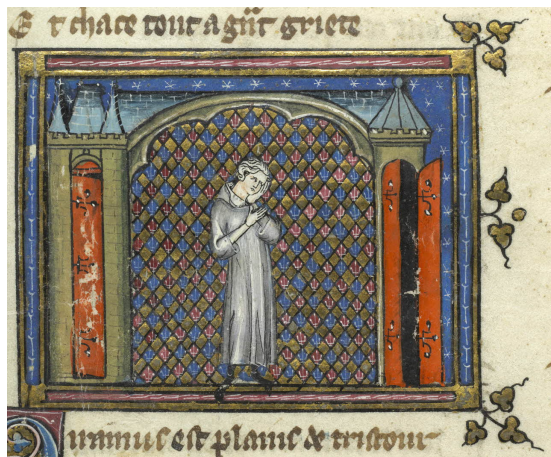 Et chace tout a gñt griete
uramus est plains de tristour